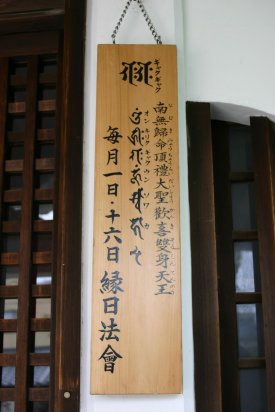 ギャクギャク
南無歸命頂禮大聖歡喜雙身天王
オン キリク ギャク ウン ソワカ
毎月一日・十六日 縁日法會